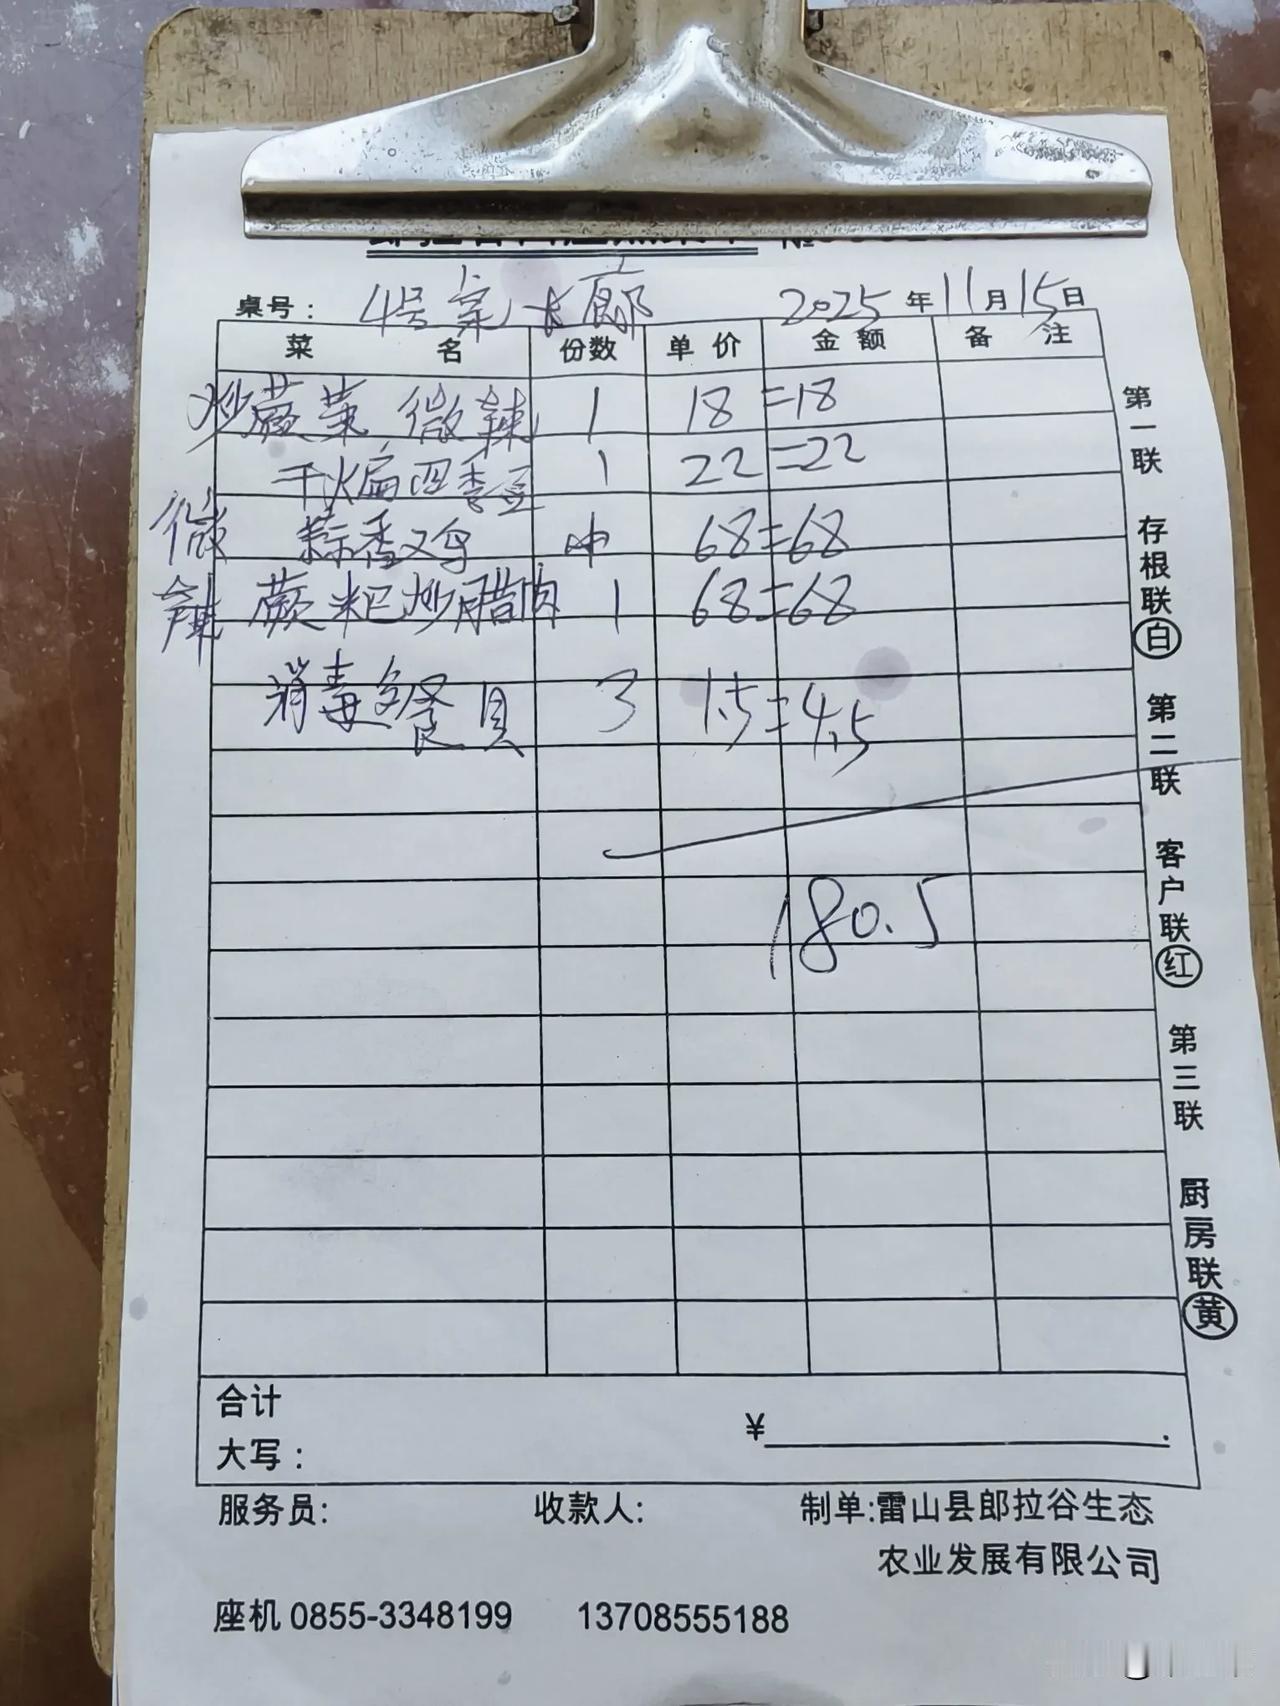 桌号： 4号 长廊 2025年11月15日
菜名 份数 单价 金额 备注
炒蕨菜 微辣 1 18 =18
干火扁四季豆 1 22 =22
微辣 蒜香鸡 中 68 =68
蕨粑炒腊肉 1 68 =68
消毒餐具 3 1.5 =4.5
180.5
合计
大写： ¥ .
服务员: 收款人: 制单:雷山县郎拉谷生态
农业发展有限公司
座机 0855-3348199 13708555188
第一联 存根联 白 第二联 客户联 红 第三联 厨房联 黄